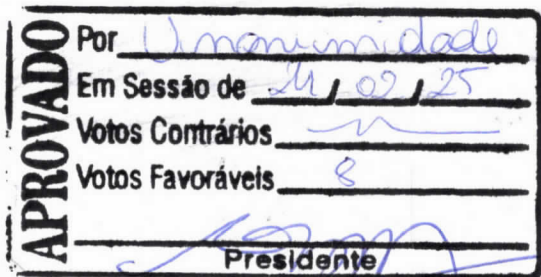 APROVADO
Por Unanimidade
Em Sessão de / 02 / 25
Votos Contrários
Votos Favoráveis 8
Presidente